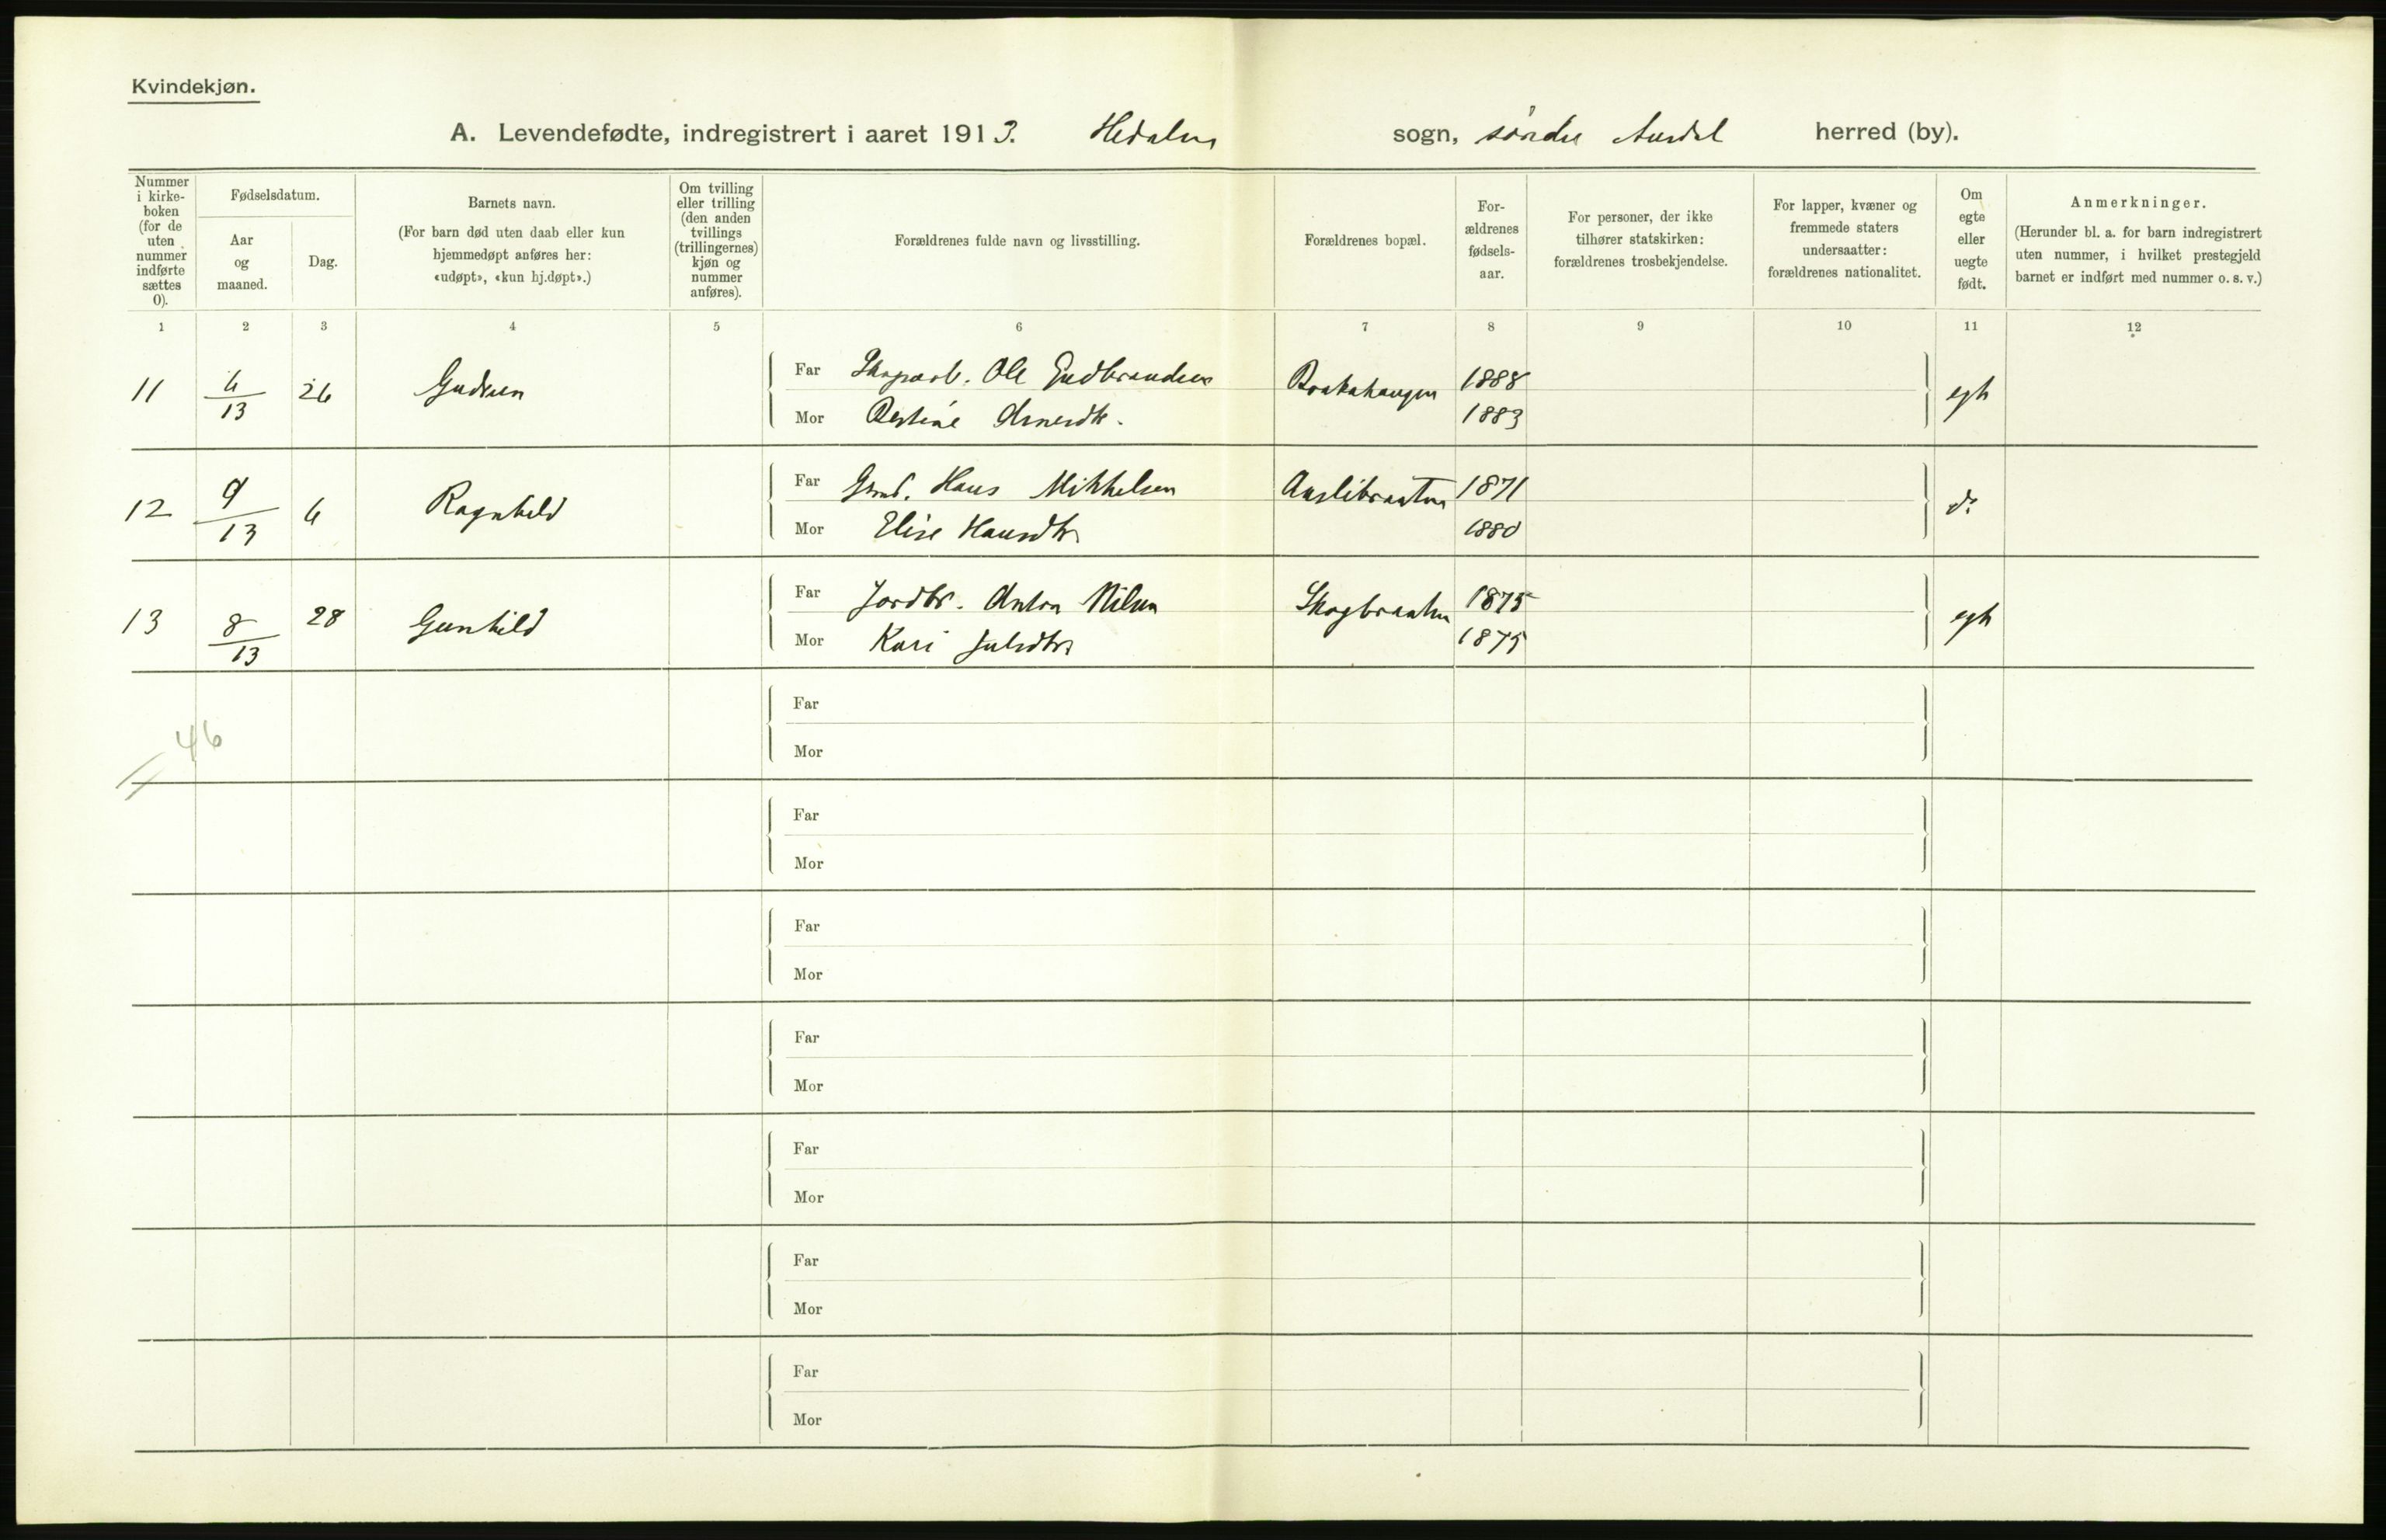 Kvindekjøn.
A. Levendefødte, indregistrert i aaret 1913. Hedalen sogn, søndre Aurdal herred (by).
Nummer i kirke-boken (for de uten nummer indførte sættes 0).
Fødselsdatum.
Aar og maaned.
Dag.
Barnets navn.
(For barn død uten daab eller kun hjemmedøpt anføres her: «udøpt», «kun hj.døpt».)
Om tvilling eller trilling (den anden tvillings (trillingernes) kjøn og nummer anføres).
Forældrenes fulde navn og livsstilling.
Forældrenes bopæl.
For-ældrenes fødsels-aar.
For personer, der ikke tilhører statskirken: forældrenes trosbekjendelse.
For lapper, kvæner og fremmede staters undersaatter: forældrenes nationalitet.
Om egte eller uegte født.
Anmerkninger.
(Herunder bl. a. for barn indregistrert uten nummer, i hvilket prestegjeld barnet er indført med nummer o. s. v.)
1 2 3 4 5 6 7 8 9 10 11 12
11 6/13 26 Gudrun Far Skogarb. Ole Gudbrandsen 1888 egte
Mor Arnesdtr. 1883
12 9/13 6 Ragnhild Far Hans Mikkelsen 1871 do
Mor Elise Hansdtr 1880
13 8/13 28 Gunhild Far Jordbr. Anton Nilsen Skogbraaten 1875 egte
Mor Kari Julsdtr 1875
Far
46
Mor
Far
Mor
Far
Mor
Far
Mor
Far
Mor
Far
Mor
Far
Mor